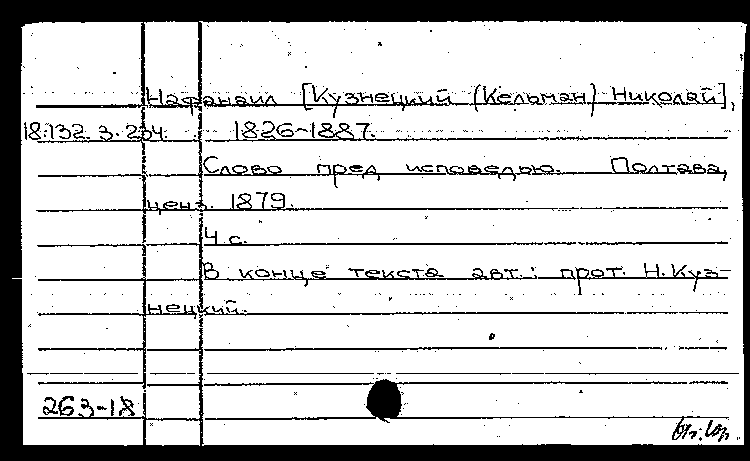 Нафанаил [Кузнецкий (Кельман) Николай],
18.132.3.234. 1826-1887.
Слово пред исповедью. Полтава,
ценз. 1879.
4 с.
В конце текста авт.: прот. Н. Куз-
нецкий.
263-18